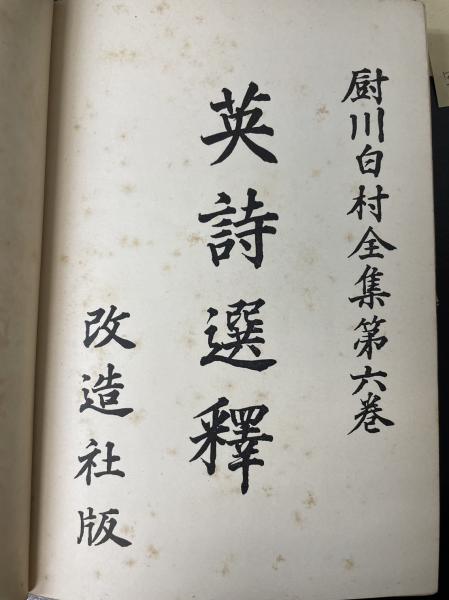 厨川白村全集第六巻
英詩選釋
改造社版